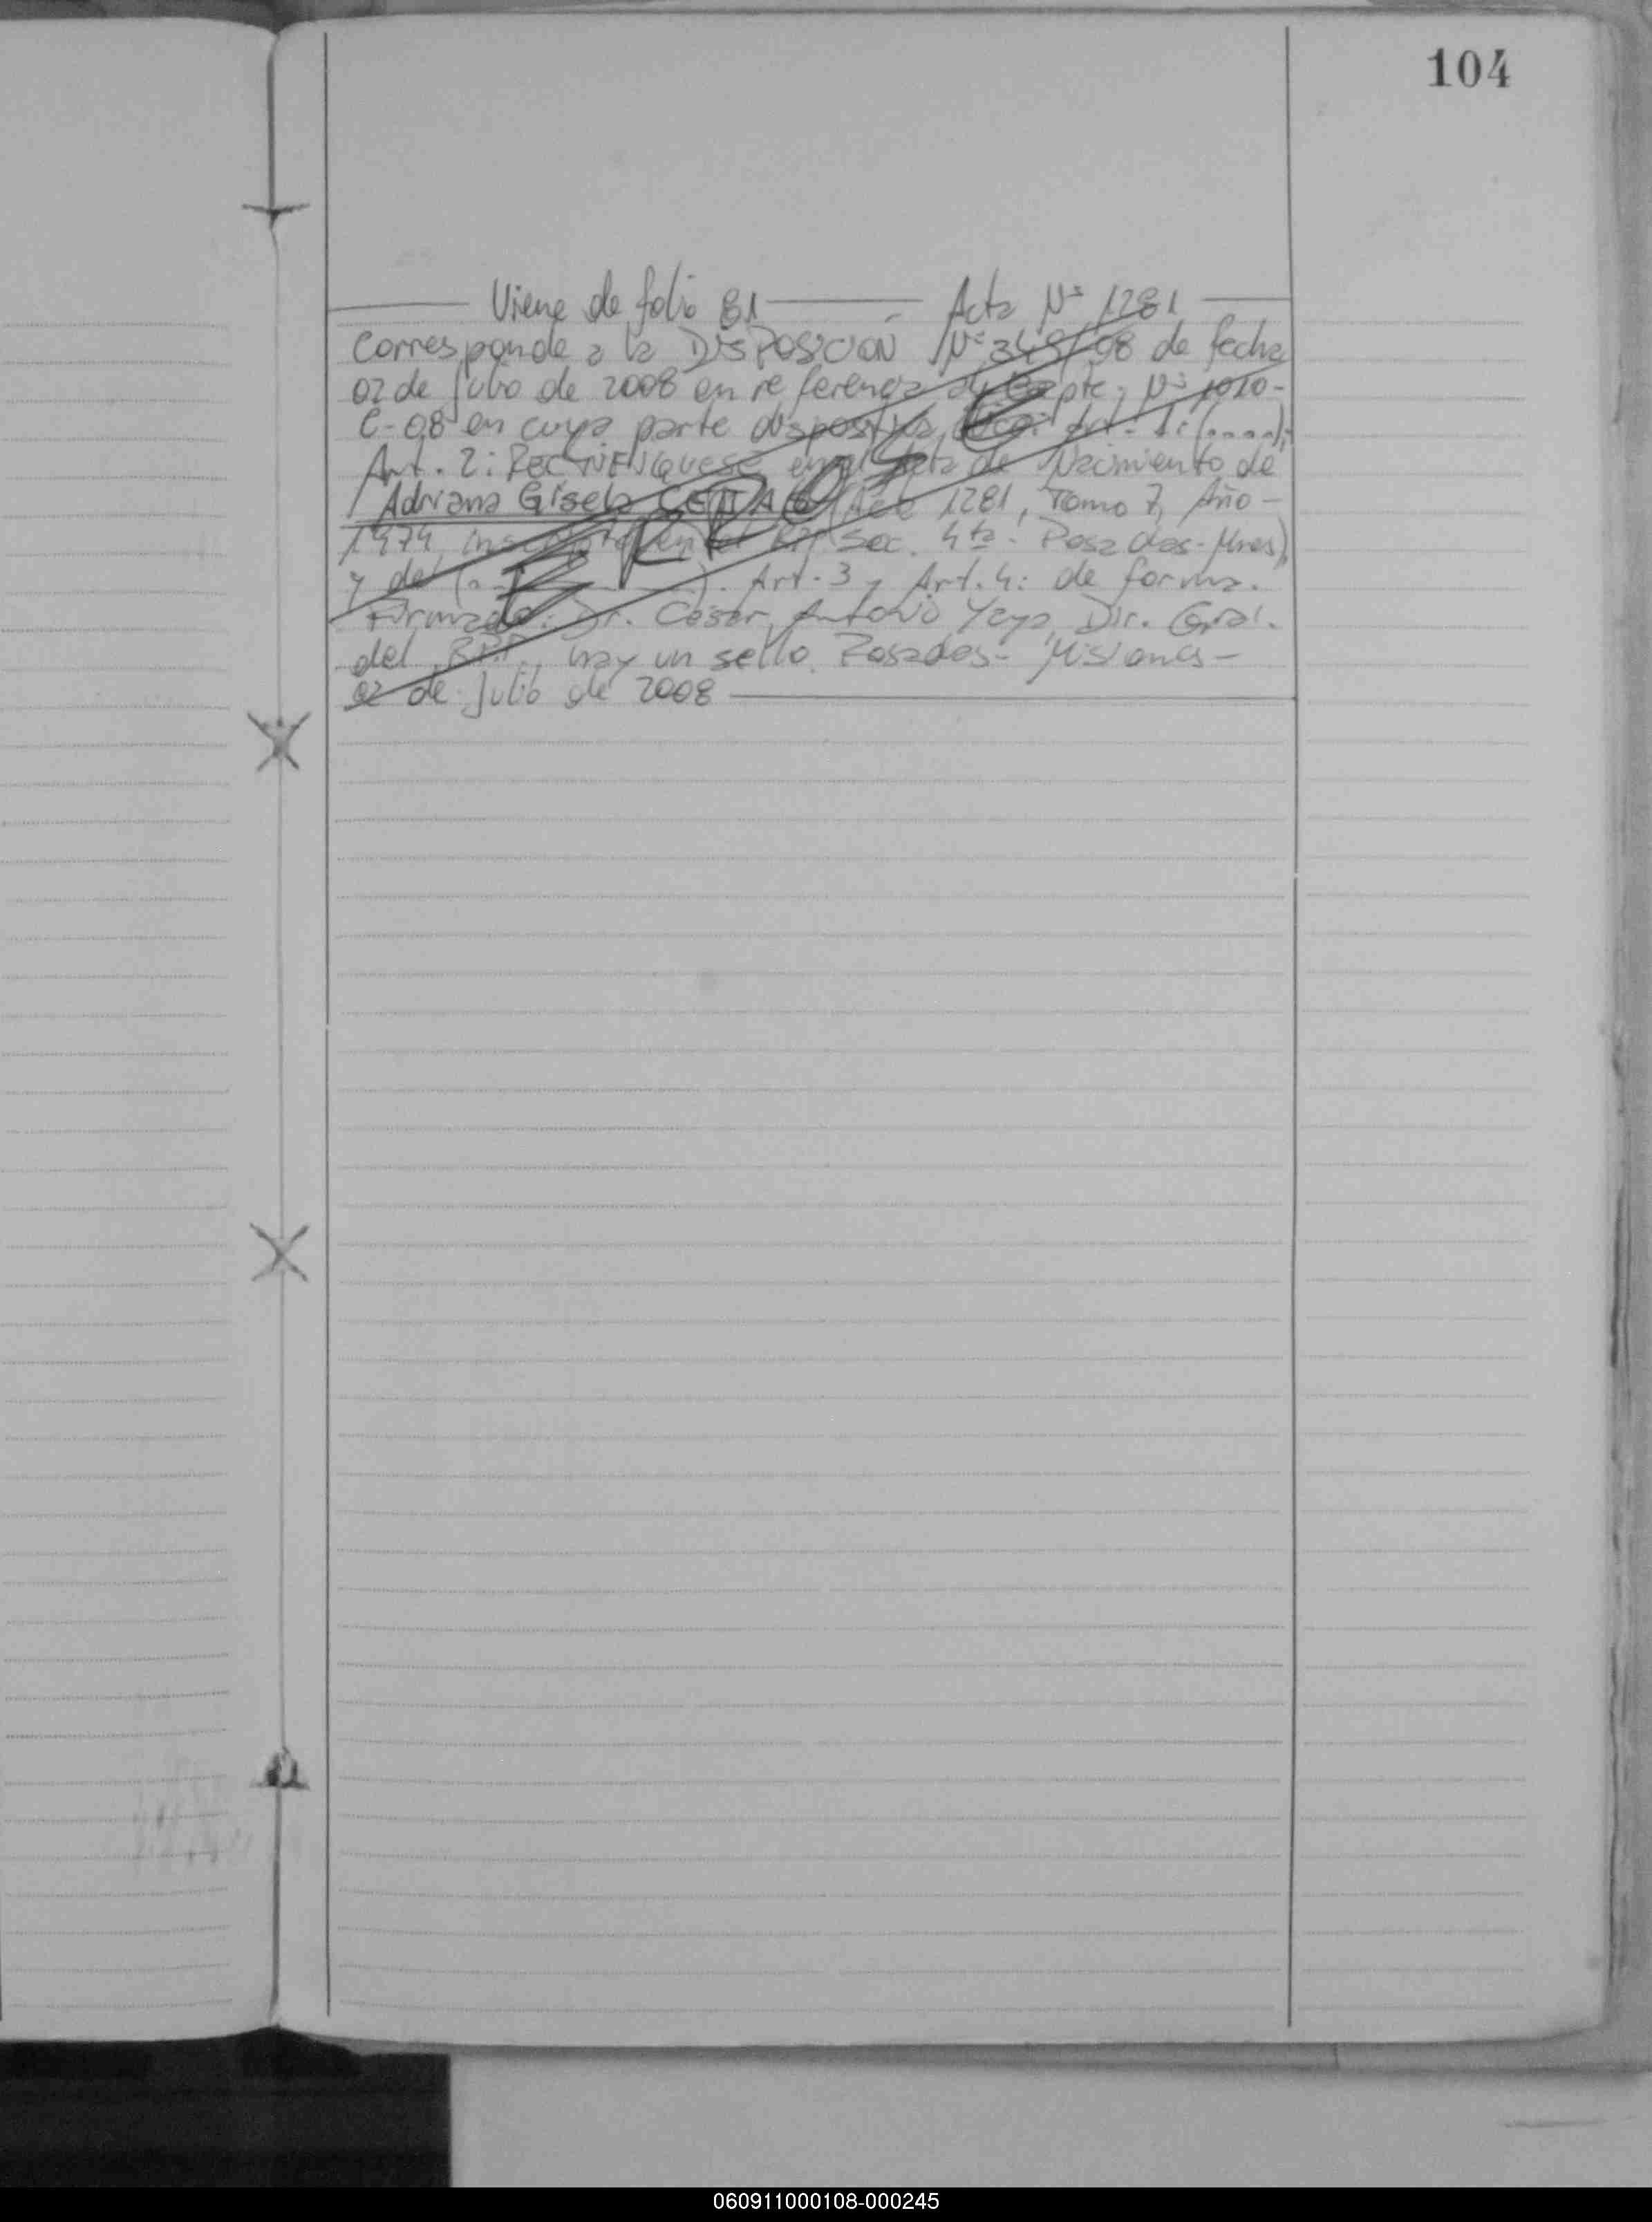 104
Viene de folio 81 Acta Nº 1281
Corresponde a la DISPOSICION Nº 349/08 de fecha
02 de Julio de 2008 en referencia al Expte. Nº 1010-
C-08 en cuya parte dispositiva dice: Art. 1: (.....);
Art. 2: en el Acta de Nacimiento de
Adriana Gisela (Acta 1281, Tomo 7, Año-
1974, Sec. 4ta - Posadas-Mnes),
y del (...). Art. 3 y Art. 4: de forma.
Firmado: Dr. César Antonio Yaya, Dir. Gral.
del hay un sello. Posadas - Misiones -
02 de Julio de 2008
ERROSE
060911000108-000245